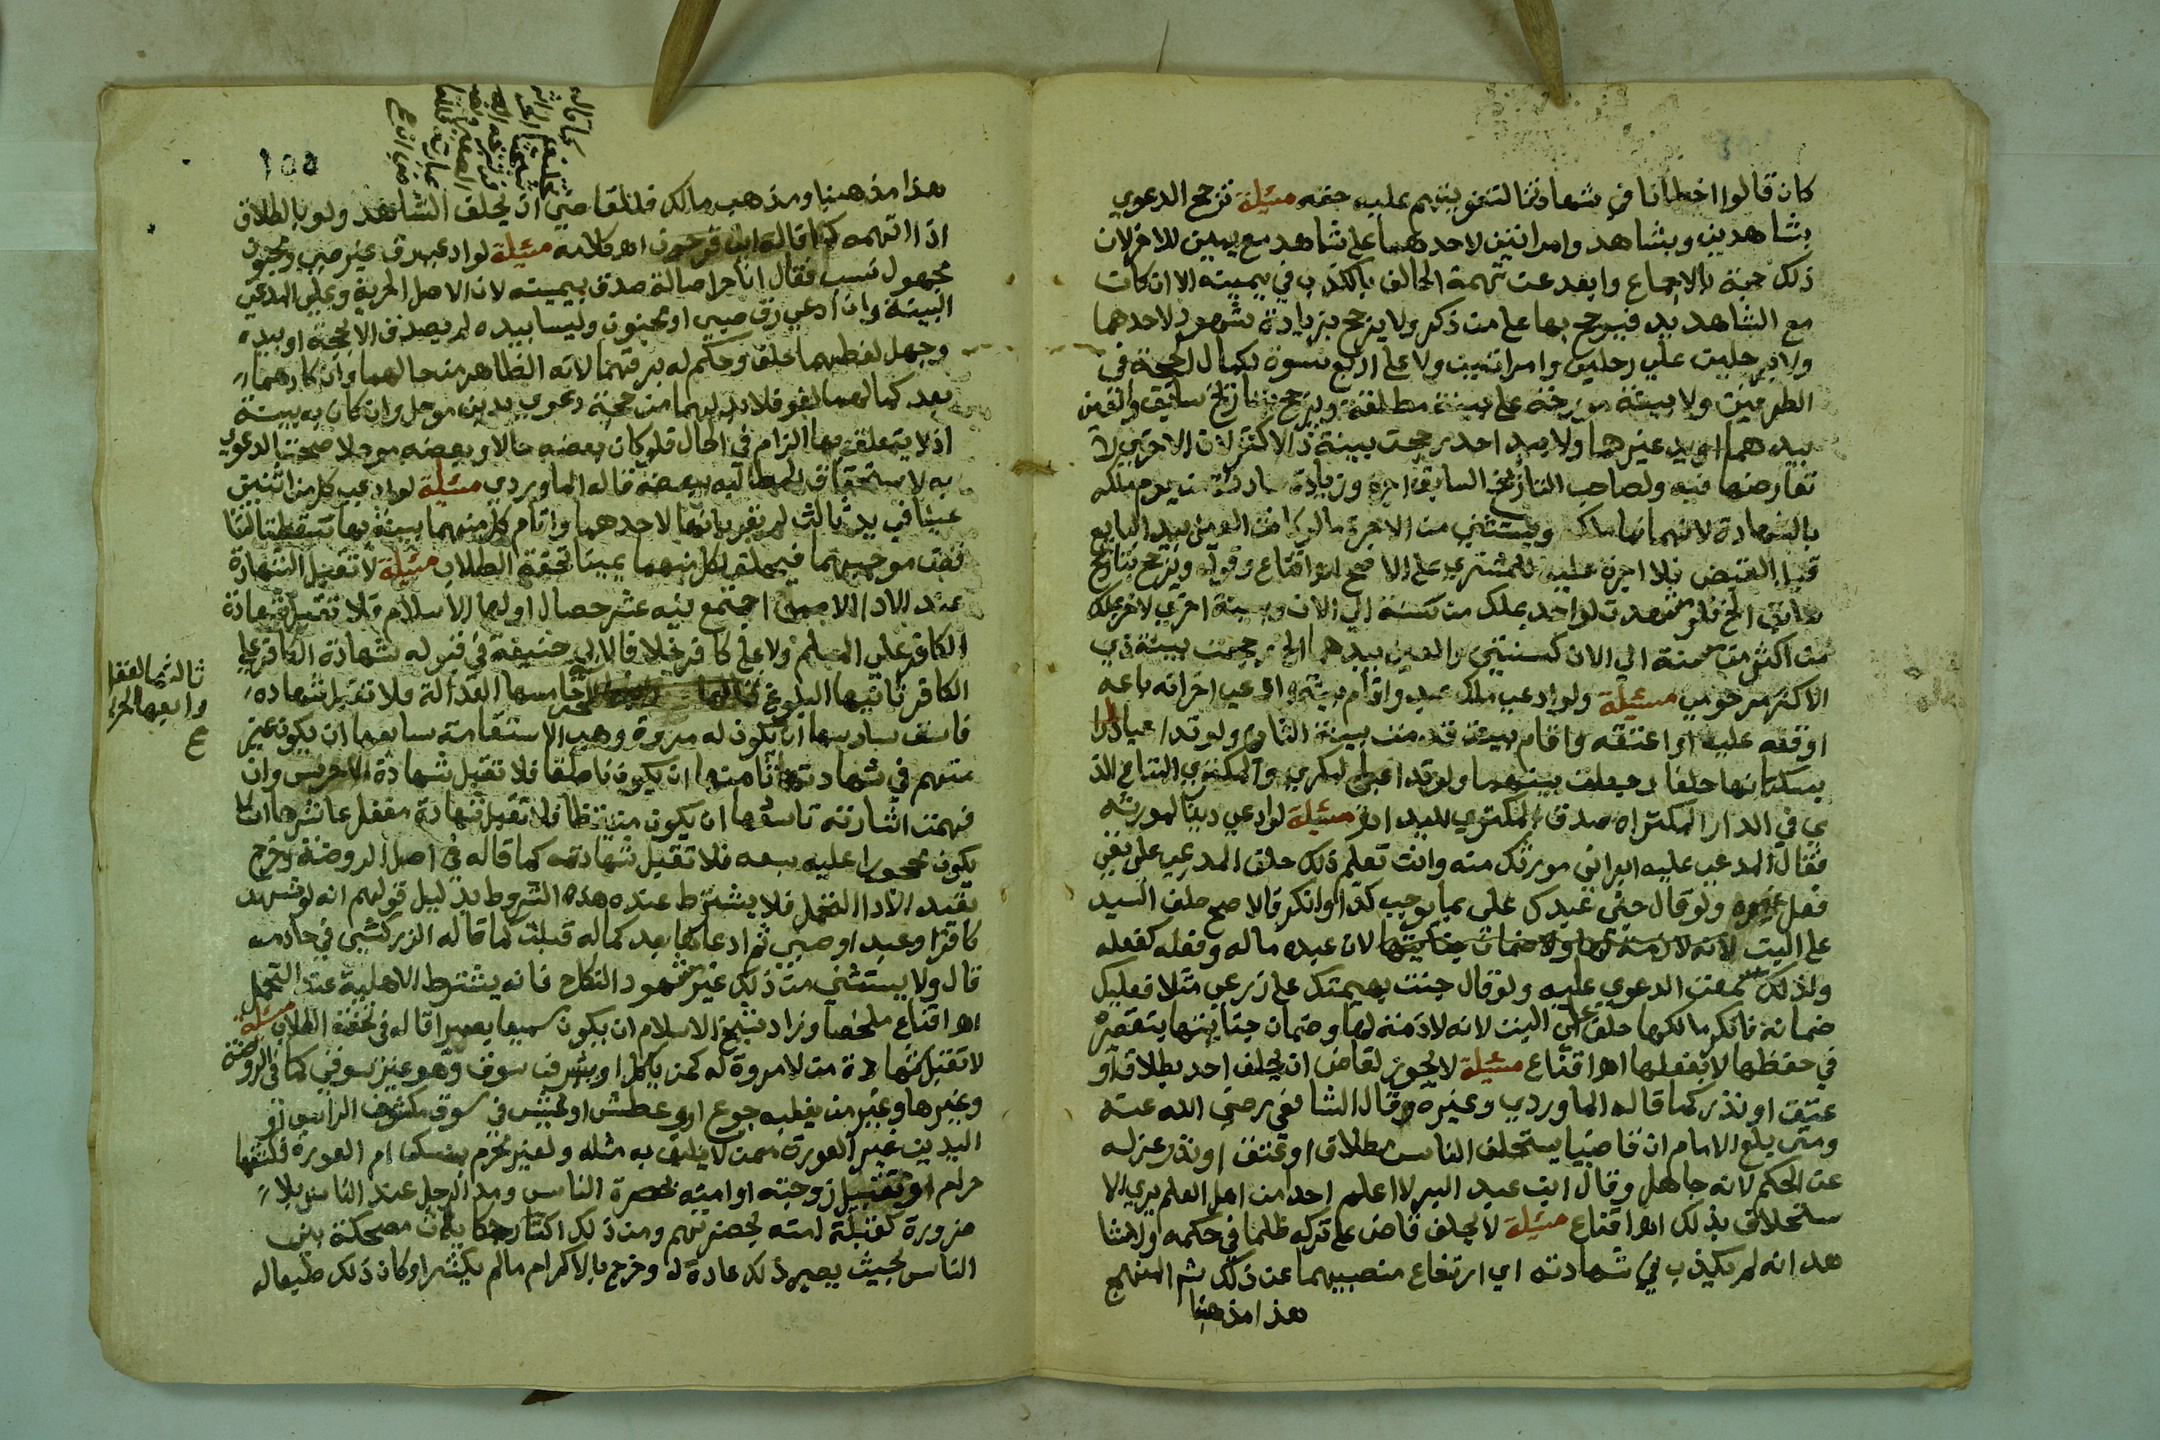 كان قالوا اخطانا في شهادتنا لتفويتهم عليه حقه مسئلة ترجح الدعوي
بشاهدين وبشاهد وامراتين لاحدهما علي شاهد مع يمين للاخر لان
ذلك حجة بالاجماع وابعد عن تهمة الحالف بالكذب في يمينه الا ان كان
مع الشاهد يد فيرجح بها علي من ذكر ولا يرجح بزيادة شهود لاحدهما
ولا برجلين علي رجلين وامراتين ولا علي اربع نسوة لكمال الحجة في
الطرفين ولا بينة مورخة علي بينة مطلقة ويرجح بتاريخ سابق والعين
بيدهما او يد غيرهما ولا بيد احد رجحت بينة ذي الاكثر لان الاخري لا
تعارضها فيه ولصاحب التاريخ السابق اجرة وزيادة حادثة من يوم ملكه
بالشهادة لانهما نما ملكه ويستثني من الاجرة ما لو كانت العين بيد البايع
قبل القبض فلا اجرة عليه للمشتري علي الاصح اهـ اقناع وقوله ويرجح بتاريخ
سابق الخ فلو شهدت لواحد بملك من سنة الي الان وبينة اخري لاخر بملك
من اكثر من سنة الي الان كسنتين والعين بيدهما الخ رجحت بينة ذي
الاكثر مرحومي مسئلة ولو ادعي ملك عبد واقام بينة وادعي اخر انه باعه
او وقفه عليه او اعتقه واقام بينة قدمت بينة الثاني ولو تداعيا دارا
يسكنانها حلفا وجعلت بينهما ولو تداعي المكري والمكتري المتاع الذ
ي في الدار المكتراه صدق المكتري لليد انوار مسئلة لو ادعي دينا لمورثه
فقال المدعي عليه ابراني مورثك منه وانت تعلم ذلك حلف المدعي علي نفي
فعل غيره ولو قال جني عبدك علي بما يوجب كذا وانكر فالاصح حلف السيد
علي البت لان عبده ماله وفعله كفعله
ولذلك سمعت الدعوي عليه ولو قال جنت بهيمتك علي زرعي مثلا فعليك
ضمانه فانكر مالكها حلف علي البت لانه لا ذمة لها وضمان جنايتها بتقصيره
في حفظها لا بفعلها اهـ اقناع مسئلة لا يجوز لقاض ان يحلف احد بطلاق او
عتق او نذر كما قاله الماوردي وغيره وقال الشافعي رضي الله عنه
ومتي بلغ الامام ان قاضيا يستحلف الناس بطلاق او عتق او نذر عزله
عن الحكم لانه جاهل وقال ابن عبد البر لا اعلم احدا من اهل العلم يري الا
ستحلاف بذلك اهـ اقناع مسئلة لا يحلف قاض علي تركه ظلما في حكمه ولا شا
هد انه لم يكذب في شهادته اي ارتفاع منصبيهما عن ذلك شم المنهج
هذا مذهبنا
١٥٥
هذا مذهبنا ومذهب مالك فللقاضي ان يحلف الشاهد ولو بالطلاق
اذا اتهمه كما قاله ابن فرحون اهـ كلامه مسئلة لو ادعي رق غير صبي ومجنون
مجهول نسب فقال انا حر اصالة صدق بيمينه لان الاصل الحرية وعلي المدعي
البينة وان ادعي رق صبي او مجنون وليسا بيده لم يصدق الا بحجة او بيده
وجهل لقطهما حلف وحكم له برقهما لانه الظاهر من حالهما وانكارهما
بعد كمالهما لغو فلا بد لهما من حجة دعوي بدين موجل وان كان به بينة
اذ لا يتعلق بها الزام في الحال فلو كان بعضه حالا وبعضه موجلا صحت الدعوي
به لاستحقاق المطالبه ببعضه قاله الماوردي مسئلة لو ادعي كل من اثنين
عينا في يد ثالث لم يقر بانها لاحدهما واقام كل منهما بينة بها سقطتا لتنا
قض موجبهما فيحلف لكل منهما يمينا تحفة الطلاب مسئلة لا تقبل الشهادة
عند الاداء الا ممن اجتمع فيه عشر خصال اولها الاسلام فلا تقبل شهادة
الكافر علي المسلم ولا علي كافر خلافا لابي حنيفة في قبوله شهادة الكافر علي
الكافر ثانيها البلوغ خامسها العدالة فلا تقبل شهاده
ثالثها العقل
رابعها الحرية
ع
فاسق سادسها ان تكون له مروة وهي الاستقامة سابعها ان يكون غير
متهم في شهادته ثامنها ان يكون ناطقا فلا تقبل شهادة الاخرس وان
فهمت اشارته تاسعها ان يكون متيقظا فلا تقبل شهادة مغفل عاشرها ان لا
يكون محجورا عليه بسفه فلا تقبل شهادته كما قاله في اصل الروضة وخرج
بقيد الاداء التحمل فلا يشترط عنده هذه الشروط بدليل قولهم انه لو شهد
كافر او عبد او صبي ثم ادعاها بعد كماله قبلت كما قاله الزركشي في خادمه
قال ولا يستثني من ذلك غير شهود النكاح فانه يشترط الاهلية عند التحمل
اهـ اقناع ملخصا وزاد شيخ الاسلام ان يكون سميعا بصيرا قاله في تحفة الطلاب مسئلة
لا تقبل شهادة من لا مروة له كمن ياكل او يشرب في سوق وهو غير سوقي كما في الروضة
وغيرها وغير من يغلبه جوع او عطش او يمشي في سوق مكشوف الراس او
البدين غير العورة ممن لا يليق به مثله ولغير محرم بنسك ام العورة فكشفها
حرام او تقبيل زوجته او امته بحضرة الناس ومد الرجل عند الناس بلا
ضرورة كقبلة امته بحضرتهم ومن ذلك اكثار حكايات مضحكة بين
الناس بحيث يصير ذلك عادة له وخرج بالاكرام مالم يكثر او كان ذلك طبعا له